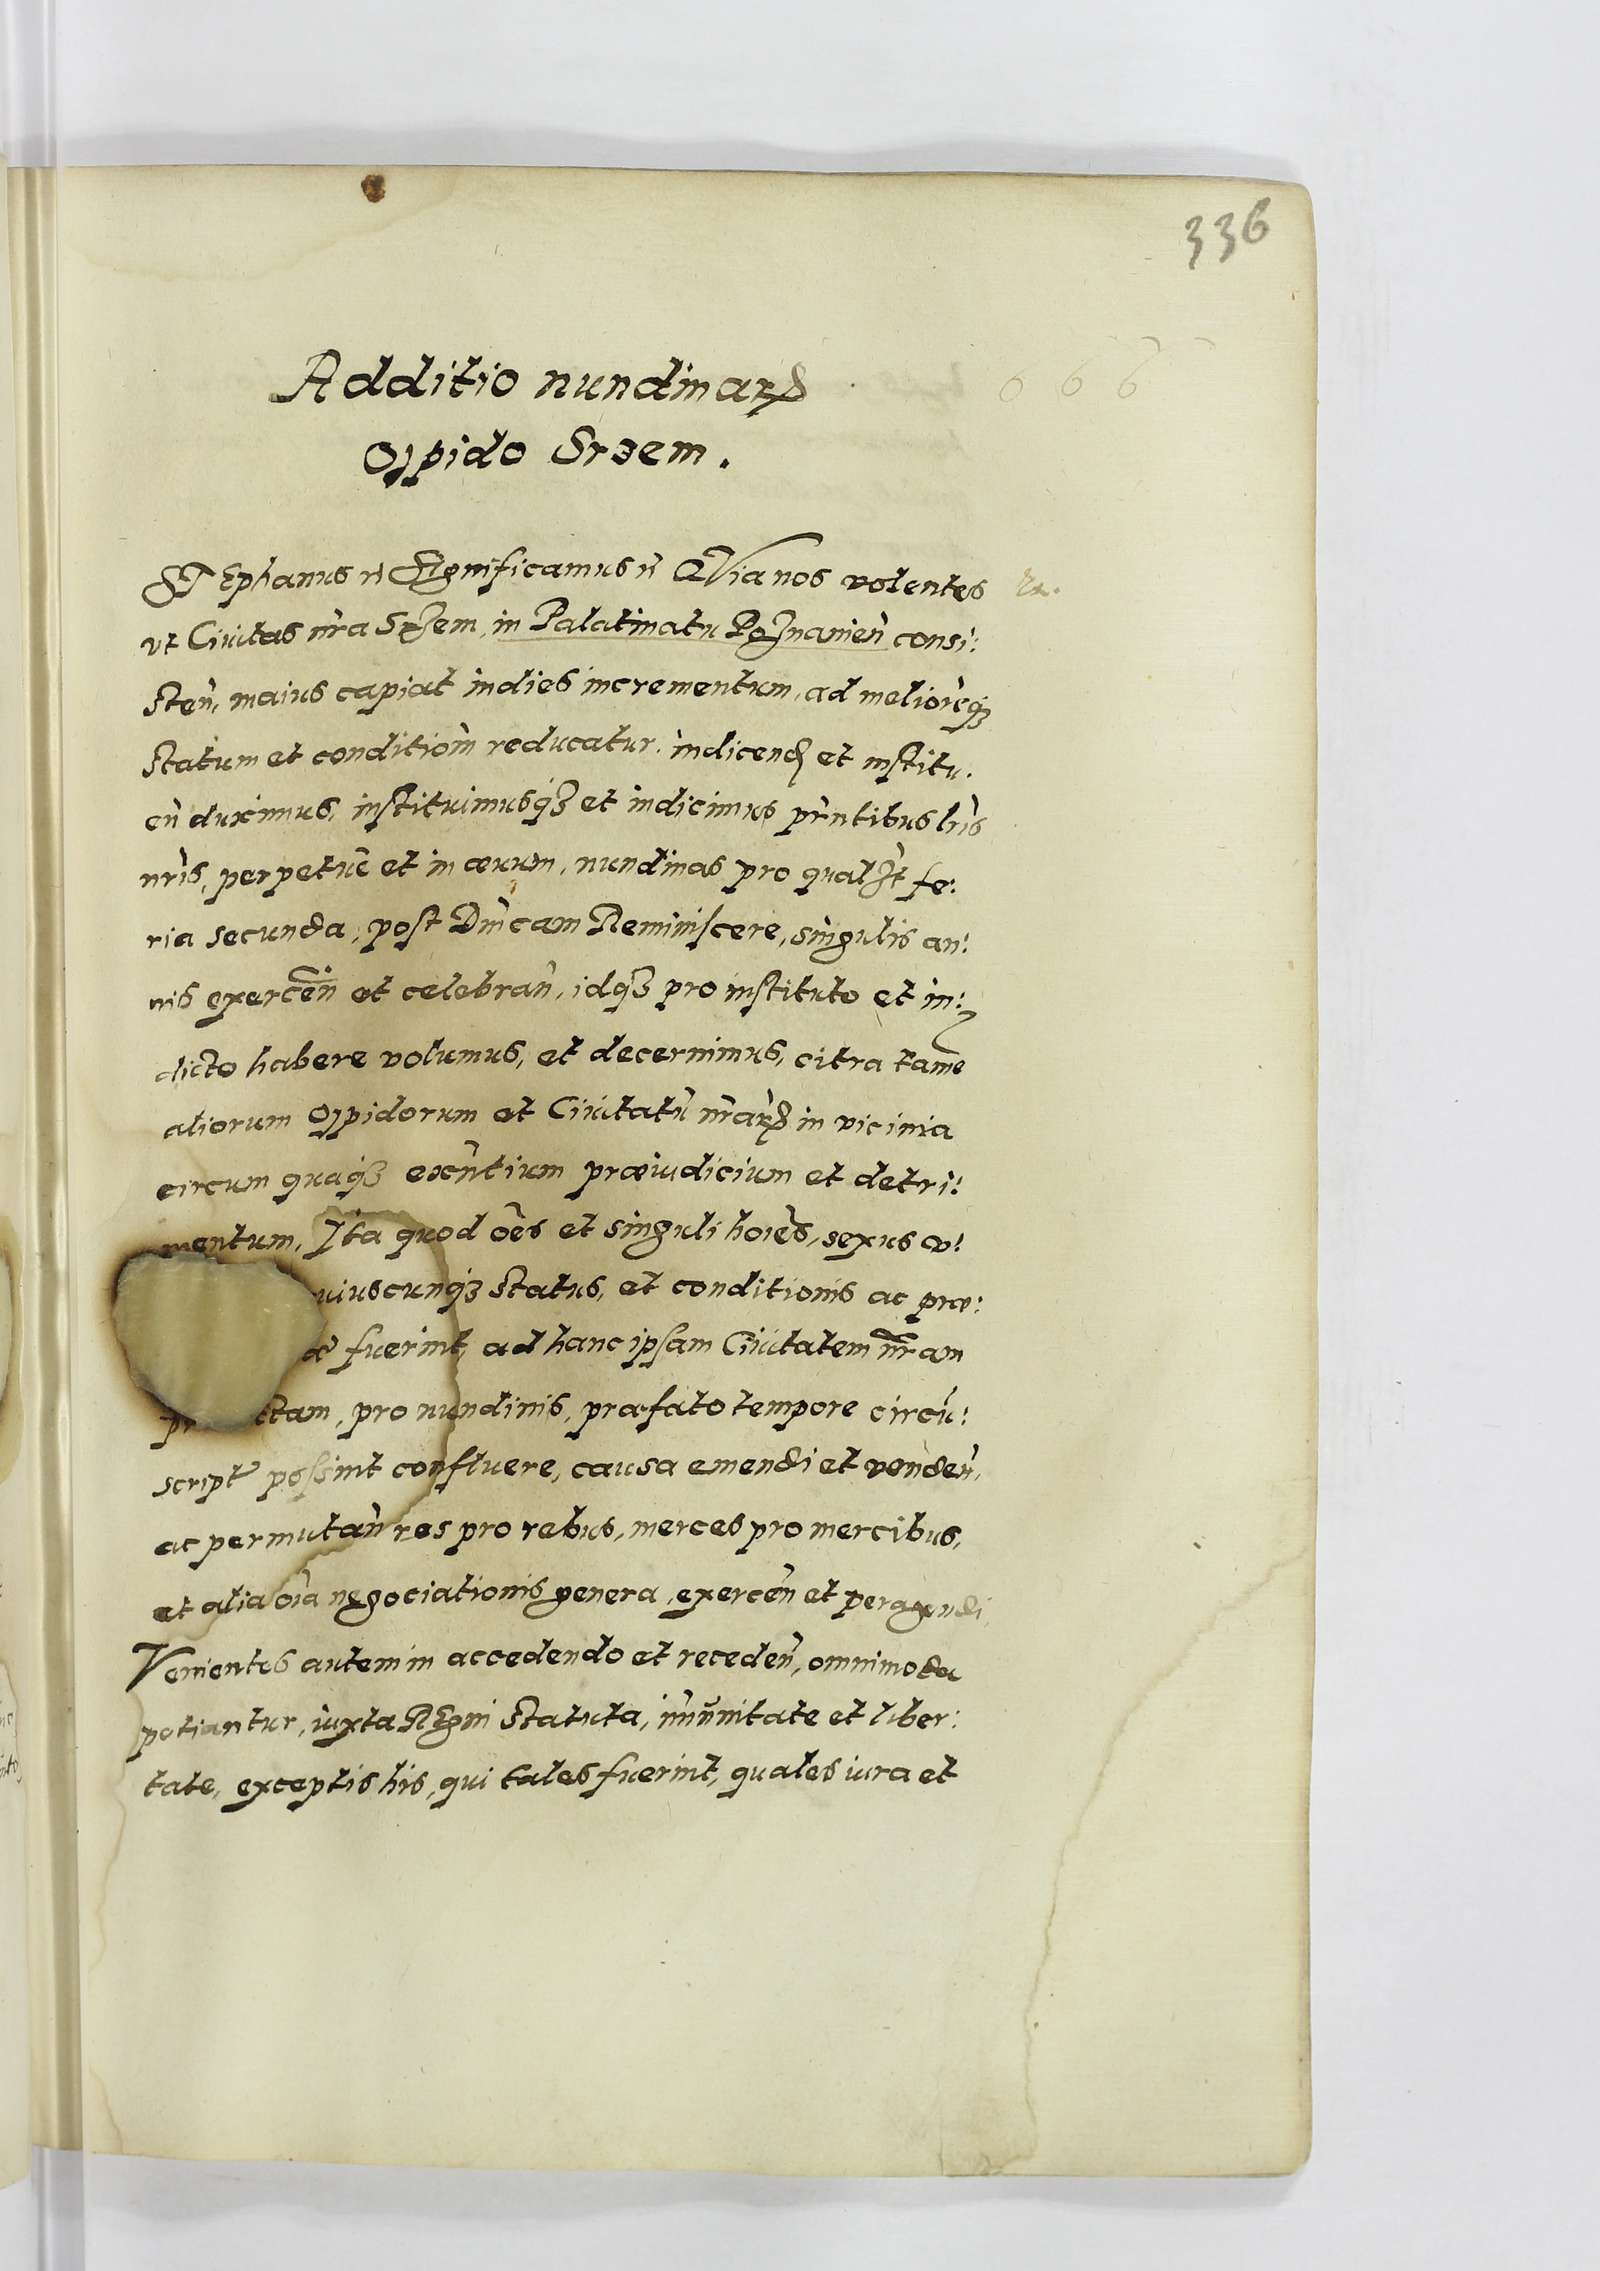 336
Additio nundinarꝝ
Oppido Srzem.
666
STEphanus ꝛc̃ Significamus ꝛc̃ QVia nos volentes
vt Ciuitas nr̃a Srzem, in Palatinatu Poznanien̄ consi:
sten̄, maius capiat indies incrementum, ad meliorẽqꝫ
statum et conditiom̃ reducatur, indicend et institu.
en̄ duximus, instituimusqꝫ et indicimus pr̃ntibus lr̃is
nr̃is, perpetuẽ et in æuum, nundinas pro qualꝫt fe:
ria secunda, post Dnĩcam Reminiscere, singulis an:
nis exercen̄ et celebran̄, idqꝫ pro instituto et in:
dicto habere volumus, et decernimus, citra tamẽ
aliorum Oppidorum et Ciuitatũ nr̃arꝝ in vicinia
circum quaqꝫ exñtium præiudicium et detri:
mentum, Ita quod oẽs et singuli hoiẽs, sexus v:
uiuscunqꝫ status, et conditionis ac præ:
æ fuerint, ad hanc ipsam Ciuitatem nr̃am
pr ctam, pro nundinis, præfato tempore circũ:
script possint confluere, causa emendi et venden̄,
ac permutan̄ res pro rebus, merces pro mercibus,
et alia oĩa negociationis genera, exercen̄ et peragendi,
Venientes autem in accedendo et receden̄, omnimoda
potiantur, iuxta REgni statuta, im̃unitate et liber:
tate, exceptis his, qui tales fuerint, quales iura et